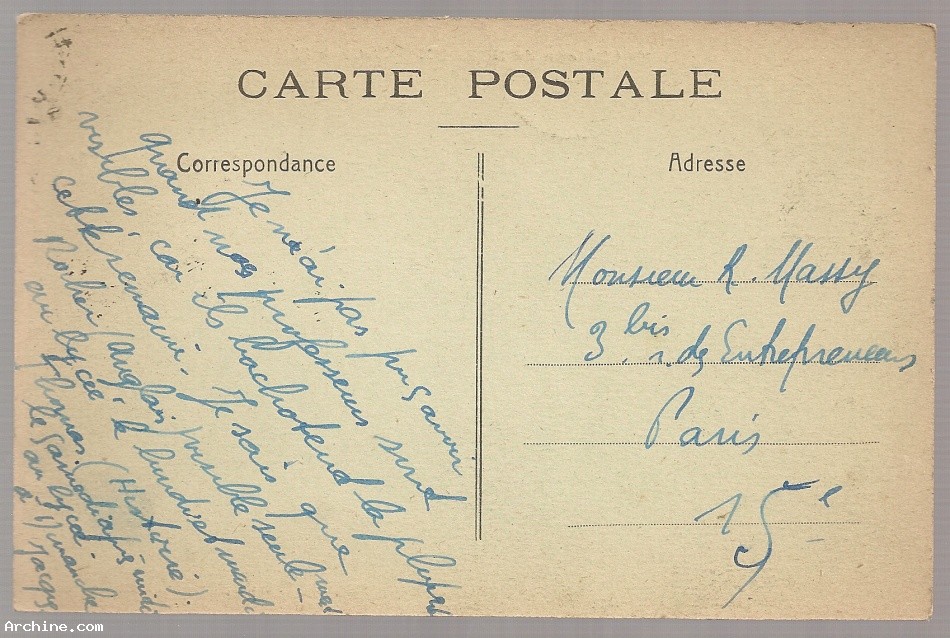 CARTE POSTALE
Correspondance
Adresse
Je n'ai pas pu savoir
quand nos professeurs sont
visibles car ils bachotent la plupart
cette semaine. Je sais que
(anglais) visible seule-
au lycée le lundi et
Thomas (Histoire).
le samedi après midi
au lycée.
à Jacques
Monsieur R. Massy
3 bis r. des Entrepreneurs
Paris
15e
Archine.com